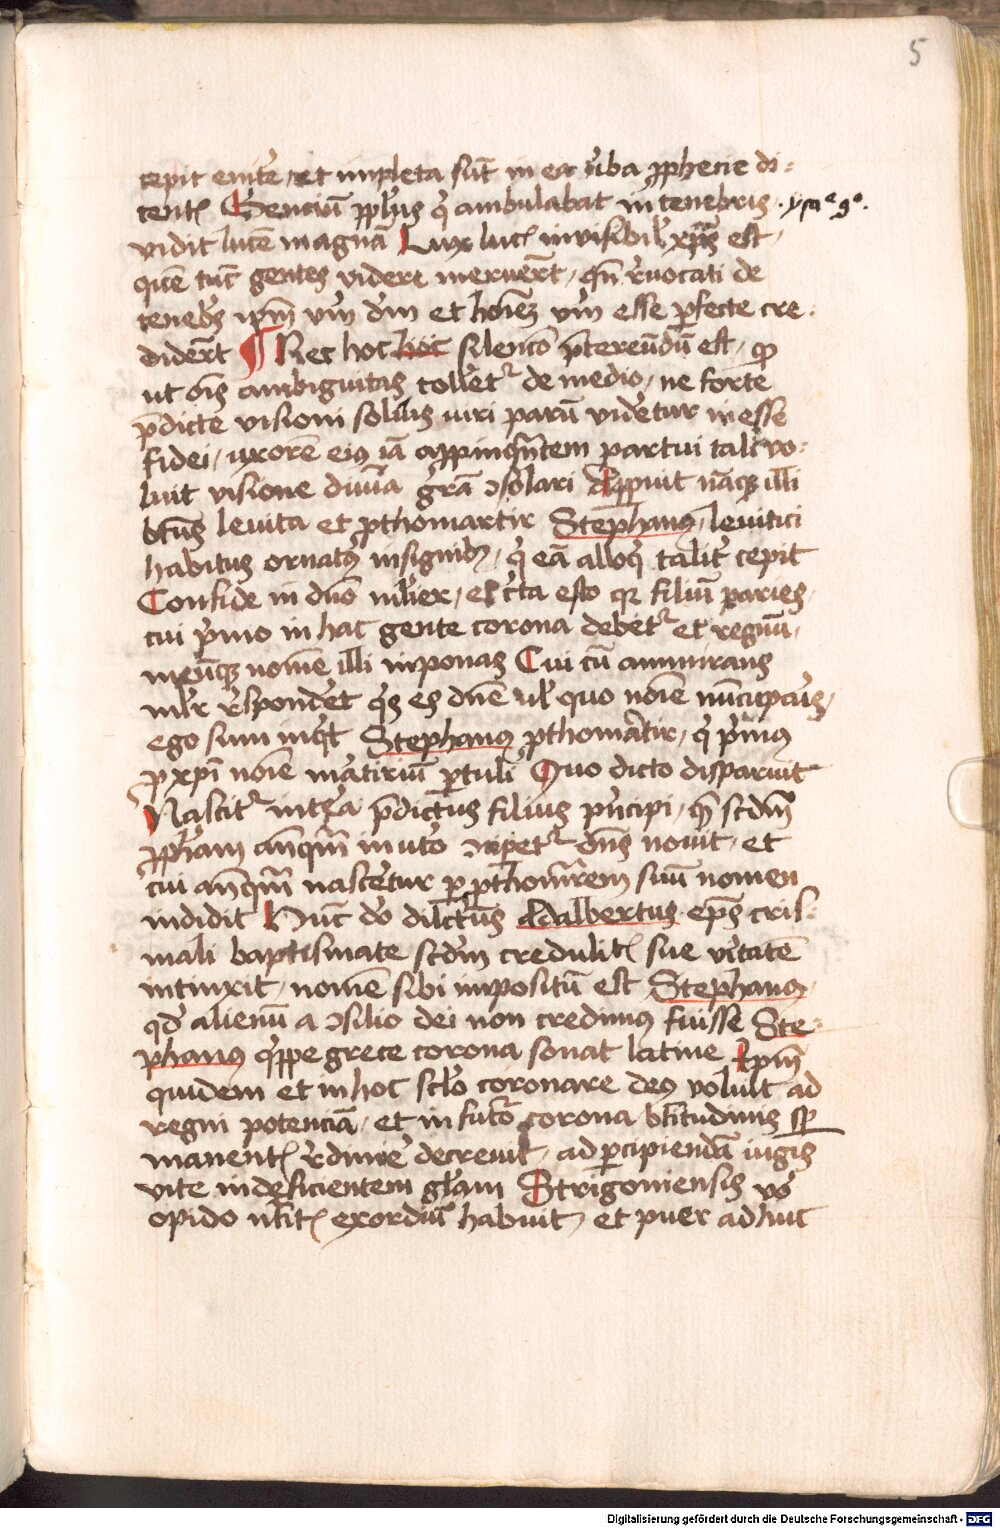 5
cepit enite᷑ et impleta sūt in ea v̓ba ꝓphecie di⸗
centꝭ Genciū pp̄lus qͥ ambulabat in tenebris · ysa e 9o.
vidit lucē magnā Lux lucꝭ invisibilꝭ xp̄s est
quē tūc gentes videre meruer̄t qn̄ r̓vocati de
tenebꝭ ip̄m vm̄ dm̄ et hoīeꝫ vm̄ esse ꝑfecte cre⸗
dider̄t ¶ Nec hoc hoc silencō p̄tereūdū est
ut oīs ambiguitas tolletᷣ de medio ne forte
p̄dicte visioni solius viri parū videtur inesse
fidei uxorē eiꝰ iā appinqn̄tem partui tali vo⸗
luit visione divīa gr̄a ɔsolari Appuit nāqꝫ illi
bt̄us levita et ꝓthomartir Stephanꝰ levitici
habitus ornatꝰ insignibꝰ qͥ eā alloqͥ talit̓ cepit
Confide in dn̄o mlīer et c̓ta esto qꝫ filiū paries
cui pͥmo in hac gente corona debetᷣ et regnū
meūqꝫ nomē illi imponas Cui cū ammirans
ml̓r r̓sponder̄et qͥs es dn̄e vl̓ quo noīe nūcupaīs
ego sum inqͥt Stephanꝰ ꝓthomārtir qͥ pͥmus
ꝓ xp̄i noīe mārtiriū ꝑtuli Quo dicto disparuit
Nascitᷣ int̓ea p̄dictus filius pͥncipi quē scd̄m
ꝓph̄am anq̄m in uto ɔciꝑetᷣ dn̄s novit et
cui anq̄m nascetur ꝑ ꝓthom̄rem suū nomen
indidit Hūc dō dilct̄us Adalbertus ep̄s cris⸗
mali baptismate scd̄m credulitꝭ sue v̓itatē
intinxit nomē sibi impositū est Stephanꝰ
qd̓ alienū a ɔsilio dei non credimꝰ fuisse Ste⸗
phanꝰ qͥppe grece corona sonat latine Ip̄m
quidem et in hoc sclō coronare deꝰ volūt ad
regni potenciā et in futo᷑ corona btītudinis sp̄
manentꝭ r̓dimē decrevit ad ꝑcipiendā iugis
vite indeficientem glām Strigoniensis vō
opido ntītꝭ exordiū habuit et puer adhuc
Digitalisierung gefördert durch die Deutsche Forschungsgemeinschaft - DFG